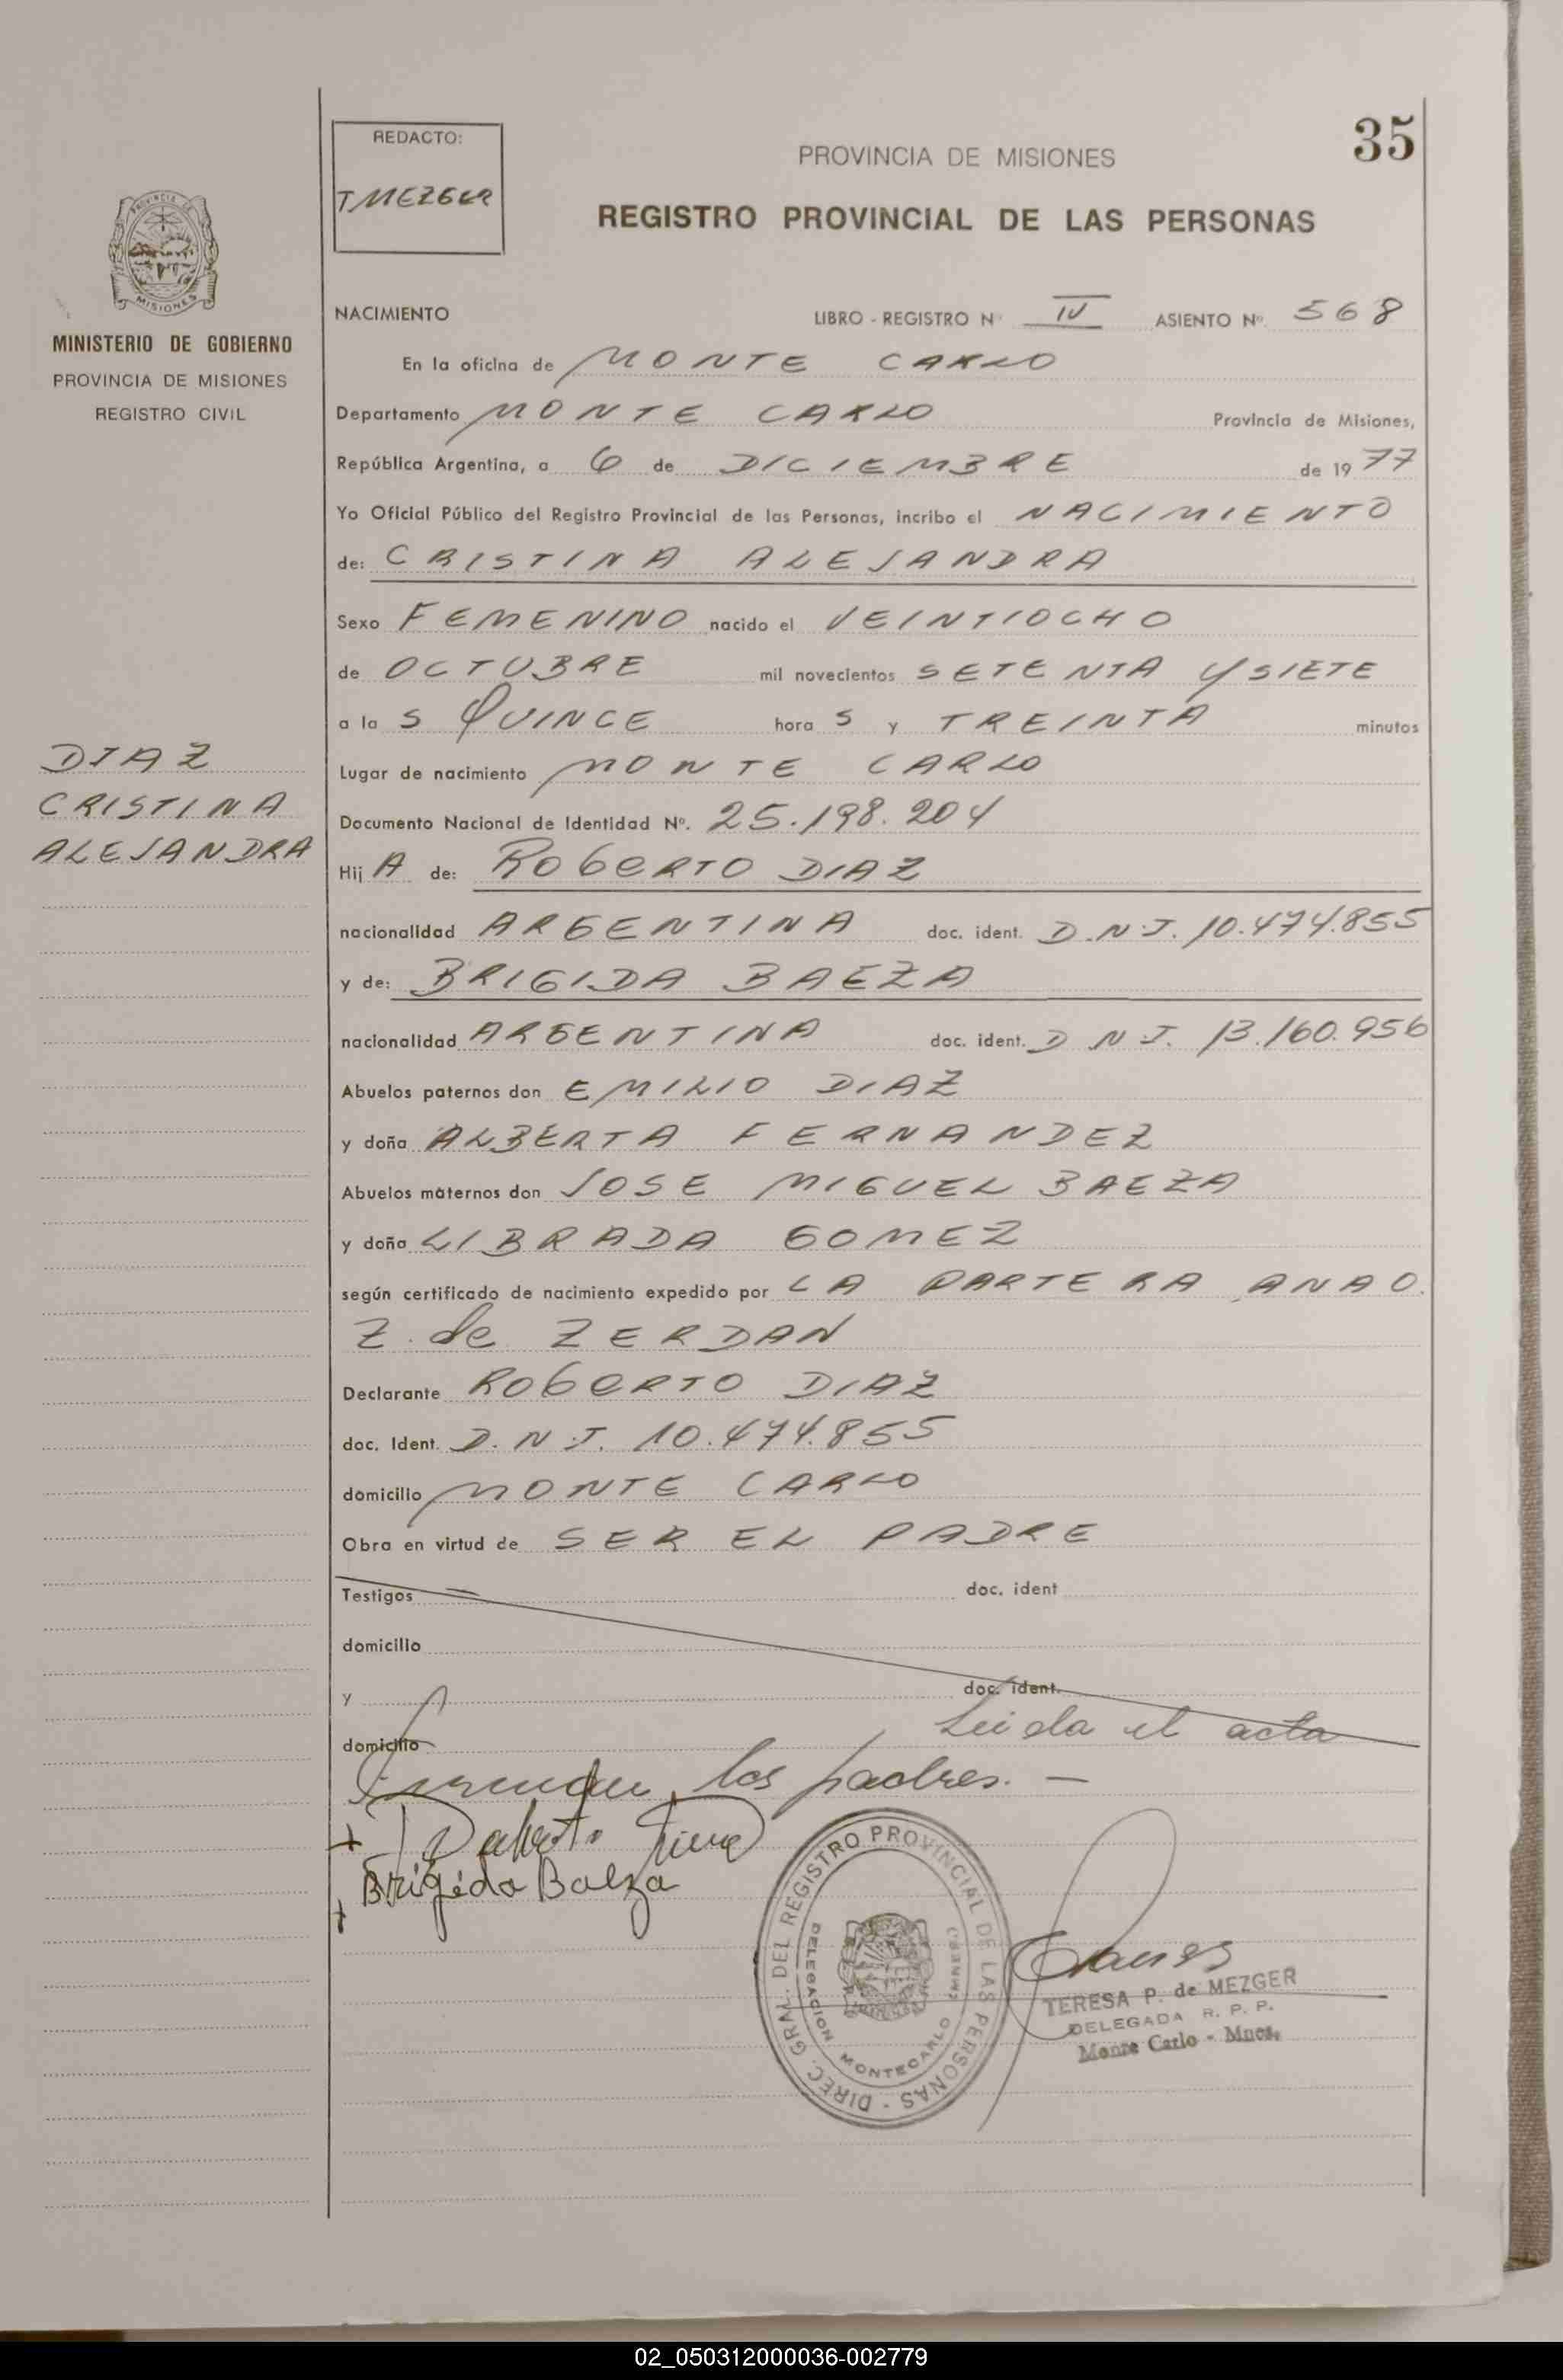 35
REDACTO:
T MEZGER
PROVINCIA DE MISIONES
REGISTRO PROVINCIAL DE LAS PERSONAS
PROVINCIA DE
MISIONES
MINISTERIO DE GOBIERNO
PROVINCIA DE MISIONES
REGISTRO CIVIL
NACIMIENTO LIBRO - REGISTRO Nº IV ASIENTO Nº. 568
En la oficina de MONTE CARLO
Departamento MONTE CARLO Provincia de Misiones,
República Argentina, a 6 de DICIEMBRE de 1977
Yo Oficial Público del Registro Provincial de las Personas, incribo el NACIMIENTO
de: CRISTINA ALEJANDRA
Sexo FEMENINO nacido el VEINTIOCHO
de OCTUBRE mil novecientos SETENTA Y SIETE
a la s QUINCE hora s y TREINTA minutos
DIAZ
CRISTINA
ALEJANDRA
Lugar de nacimiento MONTE CARLO
Documento Nacional de Identidad Nº. 25.198.204
Hij A de: ROBERTO DIAZ
nacionalidad ARGENTINA doc. ident. D.N.I. 10.474.855
y de: BRIGIDA BAEZA
nacionalidad ARGENTINA doc. ident. D N I. 13.160.956
Abuelos paternos don EMILIO DIAZ
y doña ALBERTA FERNANDEZ
Abuelos maternos don JOSE MIGUEL BAEZA
y doña LIBRADA GOMEZ
según certificado de nacimiento expedido por LA PARTERA ANA O.
Z. de ZERDAN
Declarante ROBERTO DIAZ
doc. Ident. D.N.I. 10.474.855
domicilio MONTE CARLO
Obra en virtud de SER EL PADRE
Testigos doc. ident
domicilio
y doc. ident.
domicilio Leida el acta
firman los padres. -
Brigida Baeza
DIREC. GRAL. DEL REGISTRO PROVINCIAL DE LAS PERSONAS -
DELEGACION MONTECARLO
TERESA P. de MEZGER
DELEGADA R. P. P.
Monte Carlo - Mnes.
02_050312000036-002779